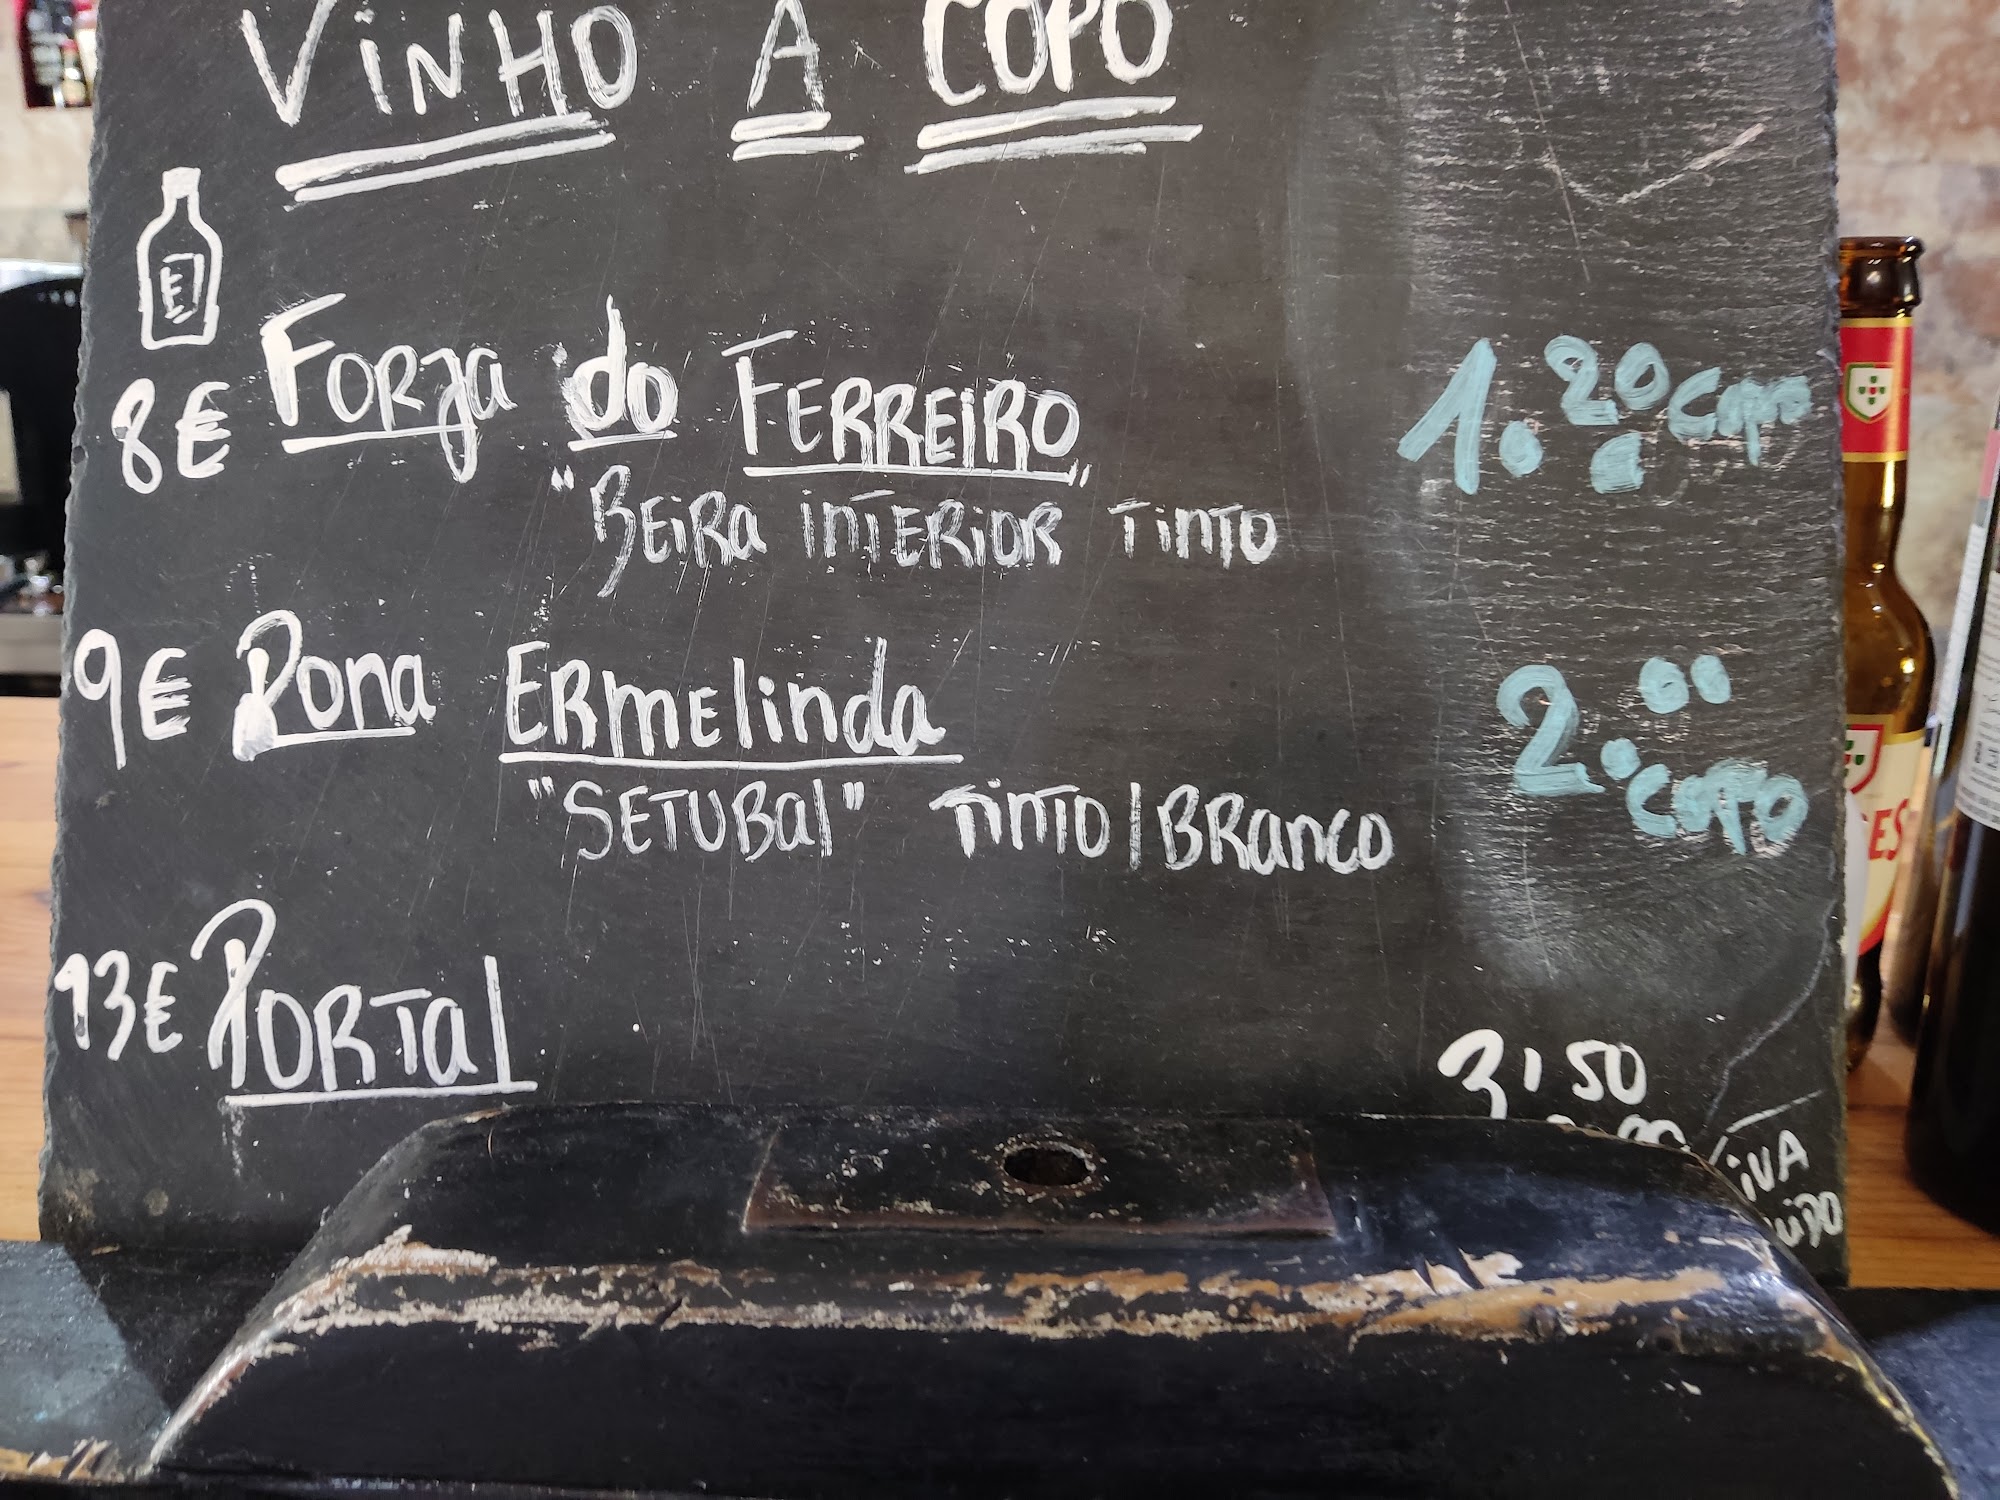 VINHO A COPO
8€ FORJA do FERREIRO 1.20 copo
"BEIRA INTERIOR" TINTO
9€ Dona ERMELINDA 2.00 copo
"SETUBAL" TINTO/BRANCO
13€ PORTAL 3,50
IVA